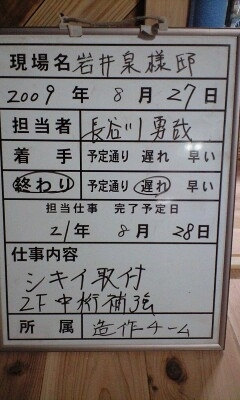 現場名 岩井泉様邸
2009年 8月 27日
担当者 長谷川 勇哉
着手 予定通り 遅れ 早い
終わり 予定通り 遅れ 早い
担当仕事 完了予定日
21年 8月 28日
仕事内容
シキイ取付
2F中桁補強
所属 造作チーム